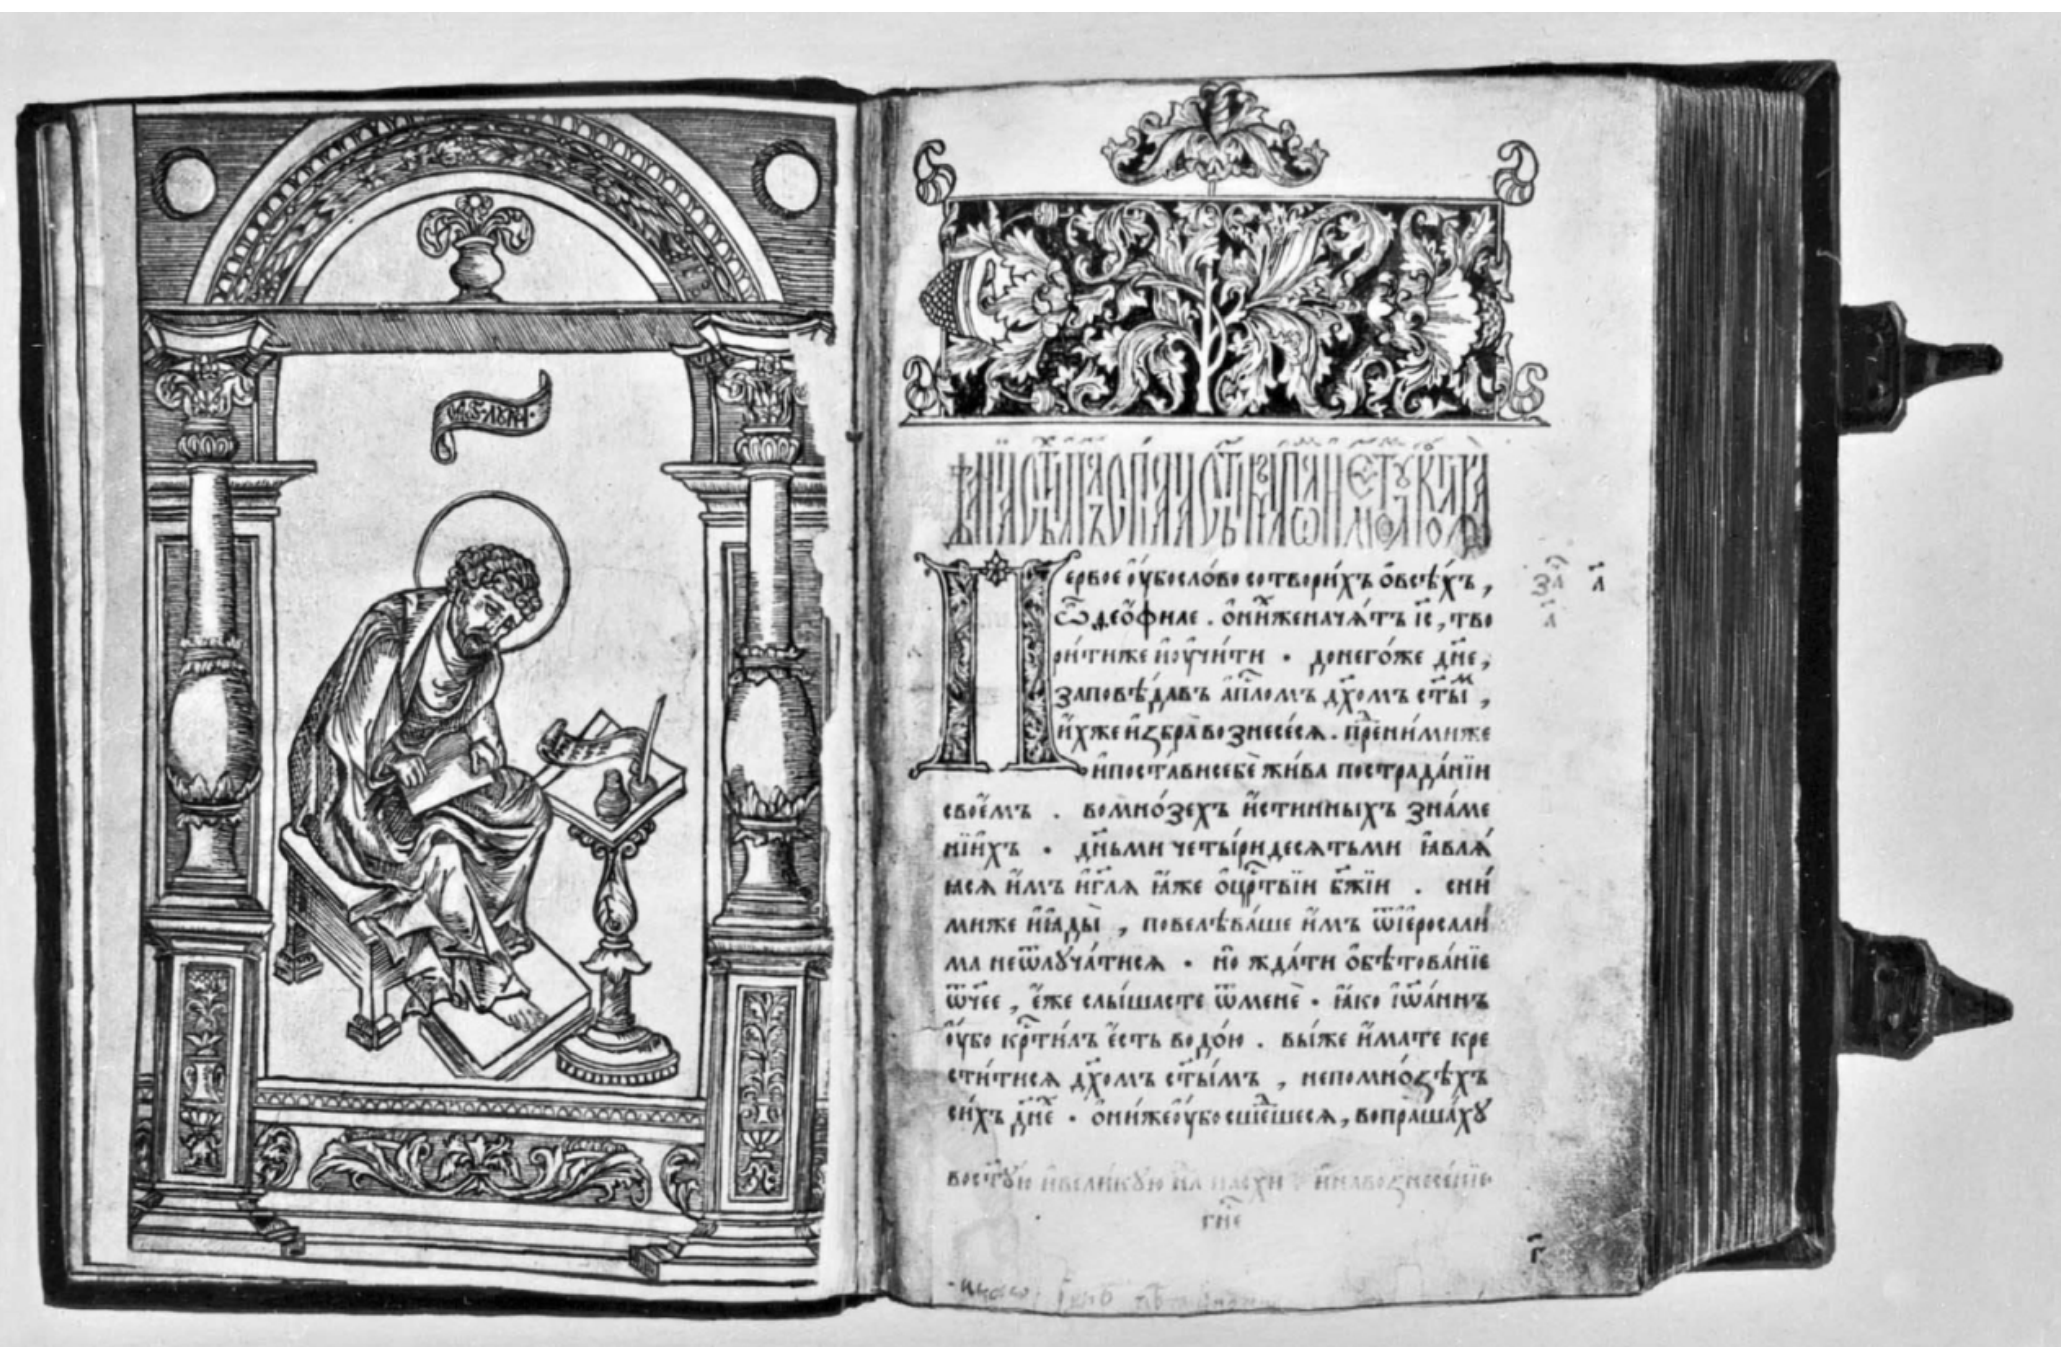 Первое ᲂу҆́бо сло́во сотвори́хъ ѡ҆всѣ́хъ,
ѽ ѳео́филе . ѻ҆ни́хже нача́тъ і҆с҃, тво
ри́тиже и҆ᲂу҆чи́ти . донего́же дн҃е,
заповѣ́давъ а҆пⷭ҇ломъ дх҃омъ ст҃ы́м ,
и҆́хже и҆ꙁбра̀ вознесе́сѧ . пред̾ни́миже
и҆поста́ви себѐ жи́ва пострада́нїи
свое́мъ . вомно́зехъ и҆́стинныхъ зна́ме
нїихъ . дн҃ьми четы́ридесѧтьми ꙗ҆влѧ́
ꙗсѧ и҆̀мъ и҆гл҃ѧ ꙗ҆́же ѻ҆црⷭ҇твїи бж҃їи . сни́
миже и҆ꙗ҆ды̀ , повелѣва́ше и҆̀мъ ѿі҆еросали́
ма неѿлꙋча́тисѧ . но жда́ти ѻ҆бѣтова́нїе
ѿч҃ее , е҆́же слы́шасте ѿменѐ . ꙗ҆́ко і҆ѡа́ннъ
ᲂу҆́бо крⷭ҇ти́лъ є҆́сть водо́ю . вы́же и҆́мате кре
сти́тисѧ дх҃омъ ст҃ы́мъ , непомно́ꙁѣхъ
си́хъ дн҃е . ѻ҆ни́же ᲂу҆́бо сшⷣешесѧ, вопраша́хꙋ
вост҃ꙋ́ю и҆вели́кꙋю нл҃ пасхи . и҆навоꙁнесе́нїе
гн҃е
за҃ а҃
г҃